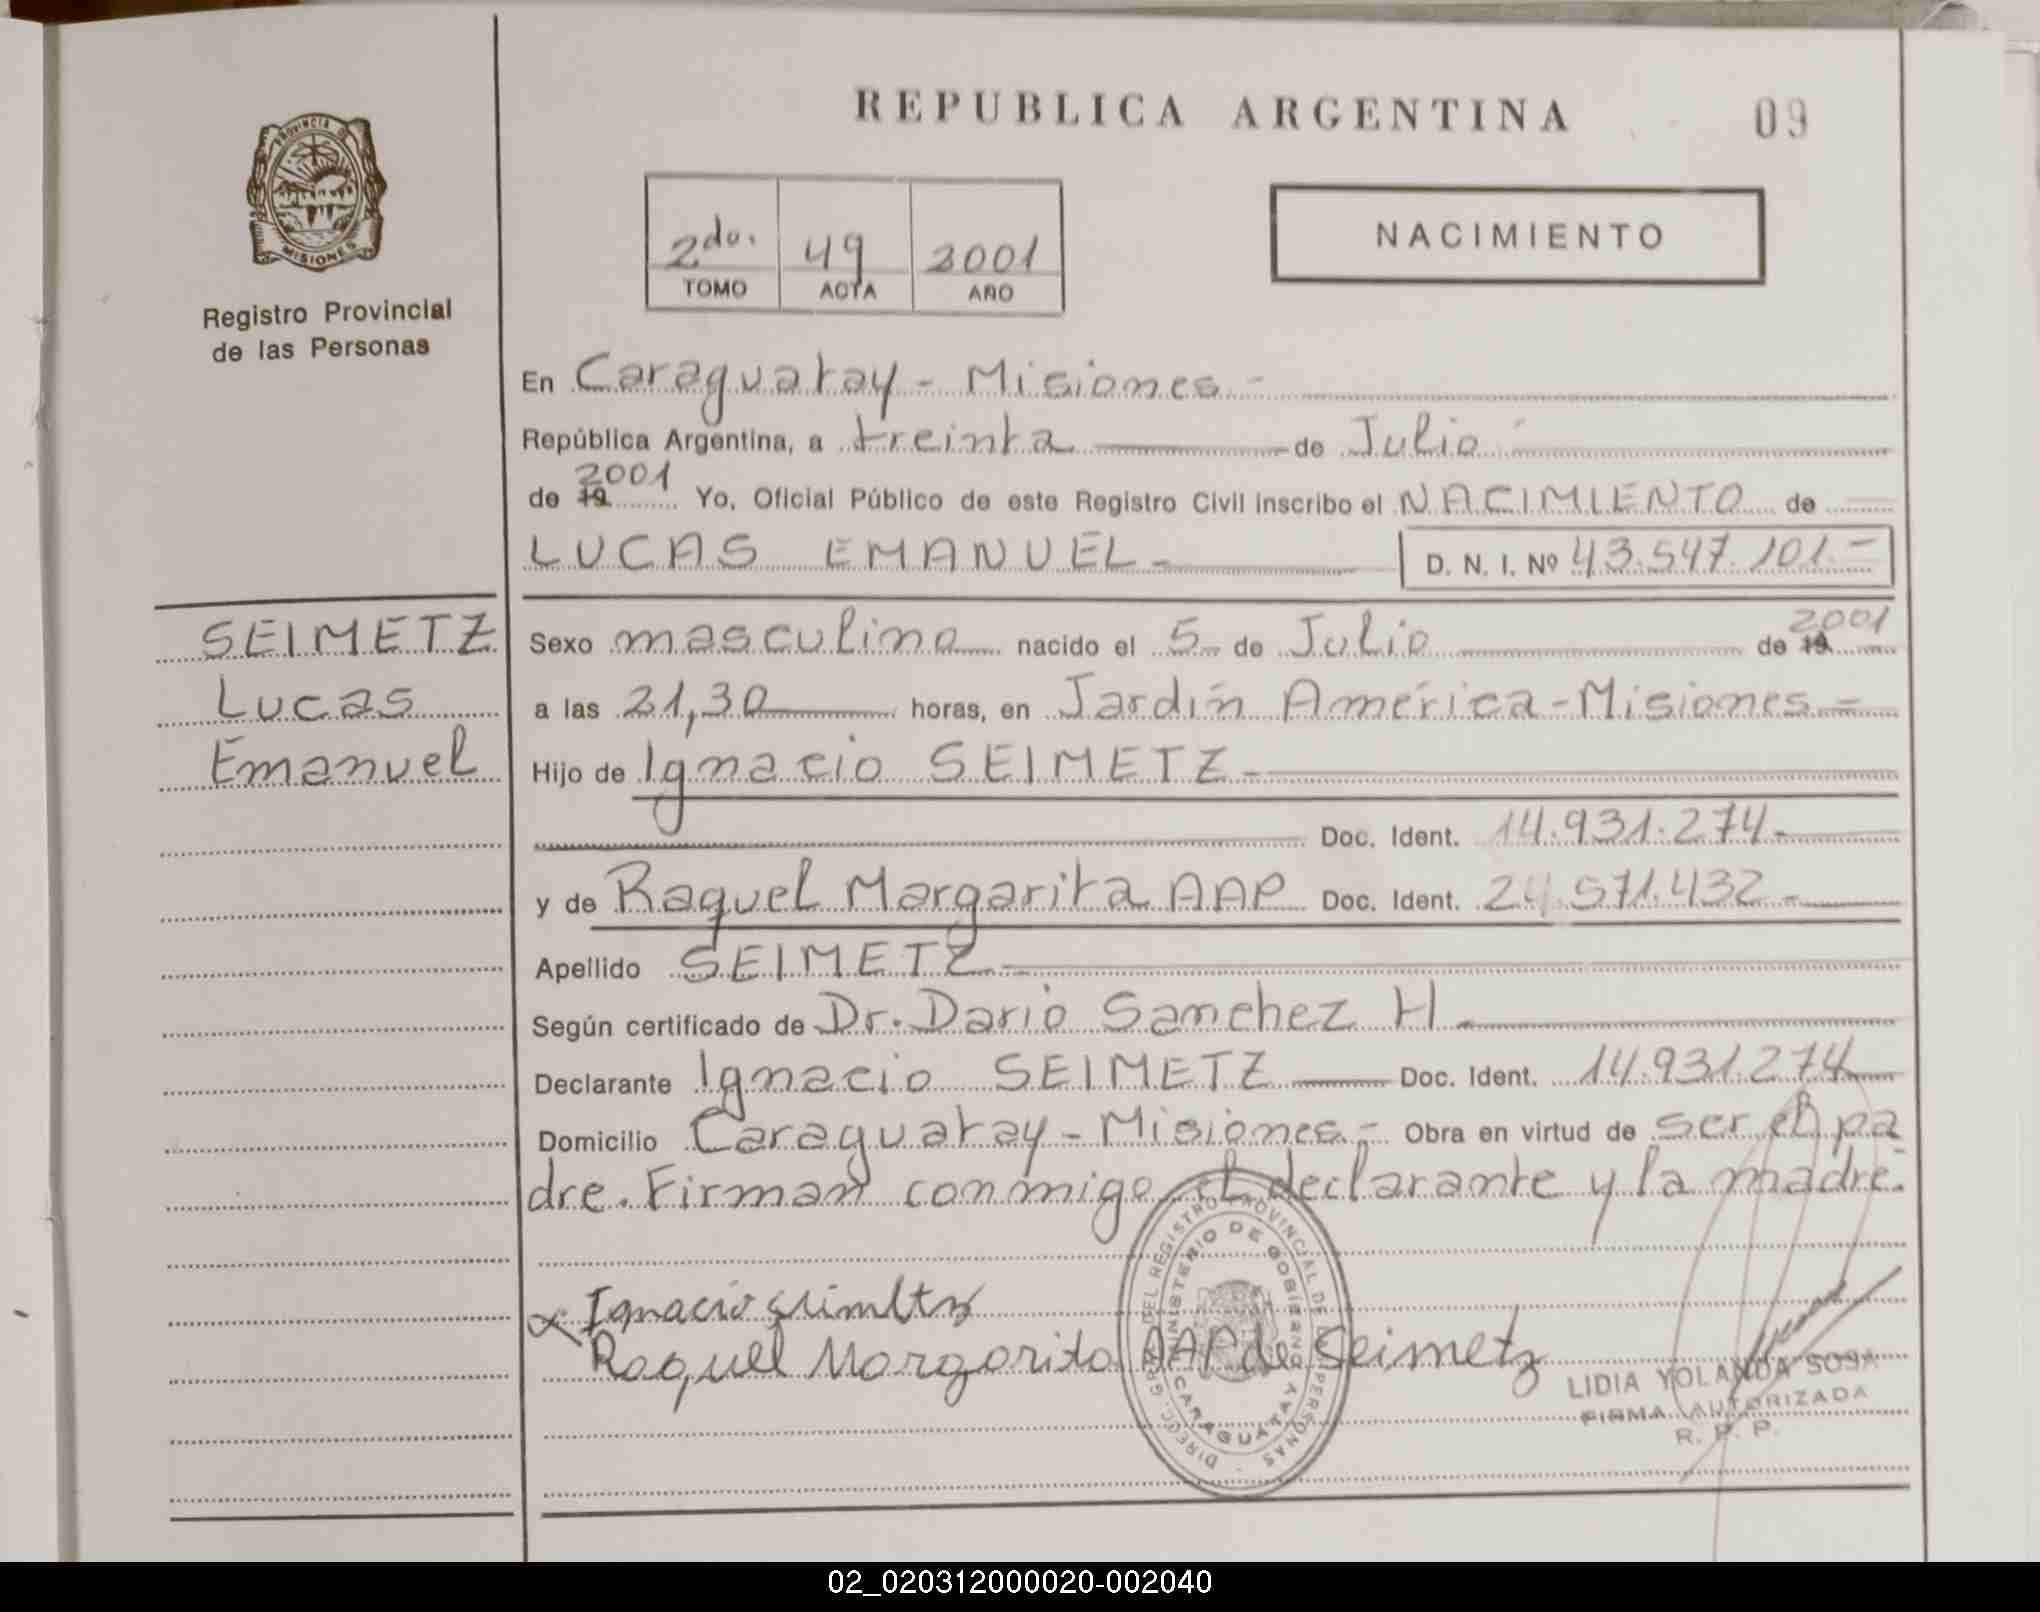 REPUBLICA ARGENTINA
09
PROVINCIA D
MISIONES
Registro Provincial
de las Personas
2do. 49 2001
TOMO ACTA AÑO
NACIMIENTO
En Caraguatay - Misiones -
República Argentina, a treinta de Julio
2001
de 19 Yo, Oficial Público de este Registro Civil inscribo el NACIMIENTO de
LUCAS EMANUEL - D. N. I. Nº 43.547.101.-
SEIMETZ
Lucas
Emanuel
2001
Sexo masculino nacido el 5 de Julio de 19
a las 21,30 horas, en Jardín América - Misiones -
Hijo de Ignacio SEIMETZ -
Doc. Ident. 14.931.274-
y de Raquel Margarita AAP Doc. Ident. 24.571.432-
Apellido SEIMETZ -
Según certificado de Dr. Dario Sanchez H -
Declarante Ignacio SEIMETZ Doc. Ident. 14.931.274
Domicilio Caraguatay - Misiones.- Obra en virtud de ser el pa
dre. Firman conmigo el declarante y la madre.
x Ignacio Seimetz
Raquel Margarita AAP de Seimetz
DIRECC. GRAL. DEL REGISTRO PROVINCIAL DE PERSONAS -
MINISTERIO DE GOBIERNO
CARAGUATAY
LIDIA YOLANDA SOSA
FIRMA AUTORIZADA
R. P. P.
02_020312000020-002040